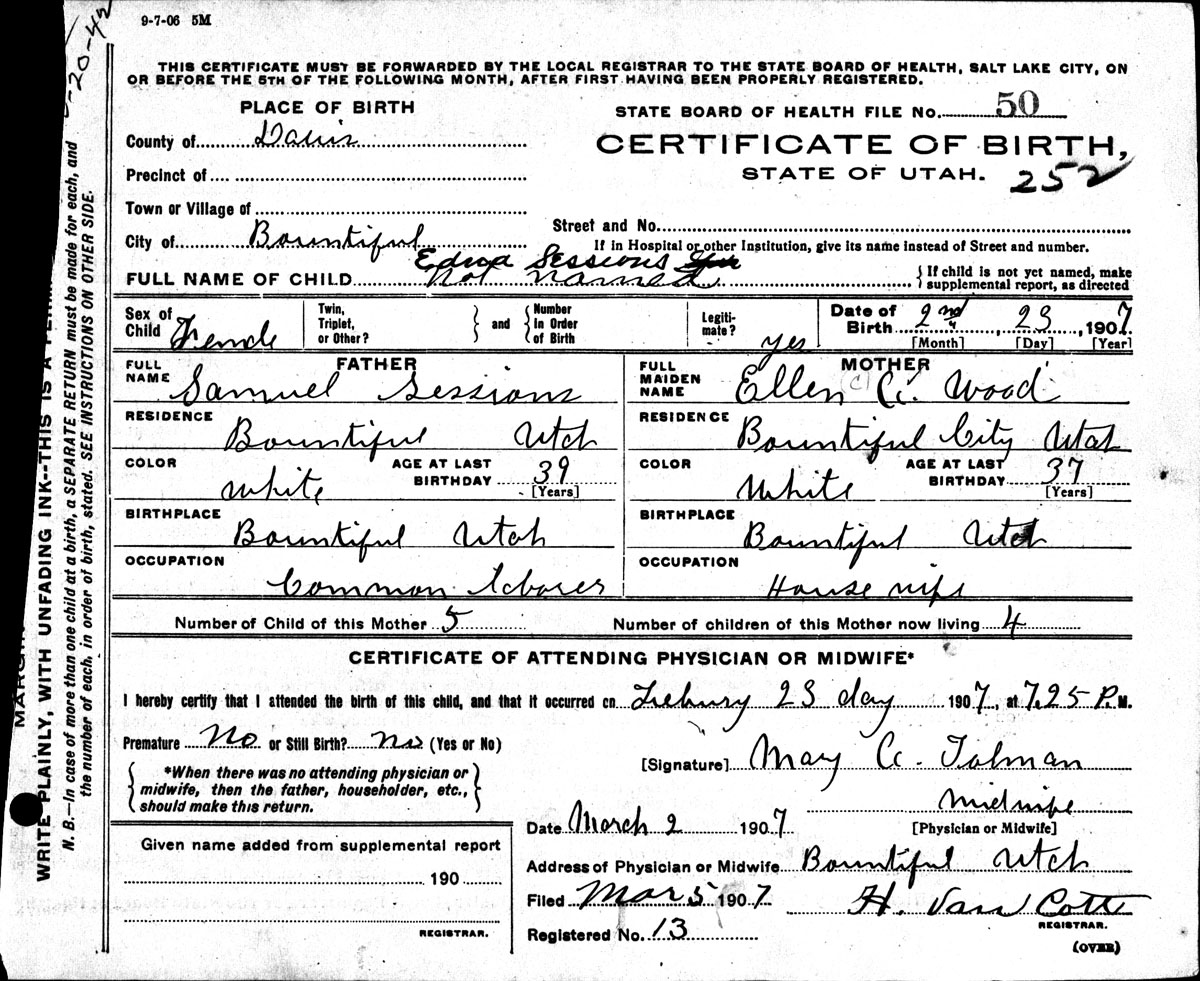 9-7-06 5M
THIS CERTIFICATE MUST BE FORWARDED BY THE LOCAL REGISTRAR TO THE STATE BOARD OF HEALTH, SALT LAKE CITY, ON
OR BEFORE THE 5TH OF THE FOLLOWING MONTH, AFTER FIRST HAVING BEEN PROPERLY REGISTERED.
PLACE OF BIRTH
STATE BOARD OF HEALTH FILE No. 50
County of Davis
CERTIFICATE OF BIRTH,
STATE OF UTAH. 252
Precinct of
Town or Village of
Street and No.
City of Bountiful
If in Hospital or other Institution, give its name instead of Street and number.
Edna Sessions
FULL NAME OF CHILD Not named
{ If child is not yet named, make
supplemental report, as directed
Sex of Child Female
Twin, Triplet, or Other? } and { Number in Order of Birth
Legitimate? yes
Date of Birth 2nd, 23, 1907
[Month] [Day] [Year]
FATHER
FULL NAME Samuel Sessions
MOTHER
FULL MAIDEN NAME Ellen C. Wood
RESIDENCE Bountiful Utah
RESIDENCE Bountiful City Utah
COLOR white AGE AT LAST BIRTHDAY 39 [Years]
COLOR White AGE AT LAST BIRTHDAY 37 [Years]
BIRTHPLACE Bountiful Utah
BIRTHPLACE Bountiful Utah
OCCUPATION Common Laborer
OCCUPATION House wife
Number of Child of this Mother 5 Number of children of this Mother now living 4
CERTIFICATE OF ATTENDING PHYSICIAN OR MIDWIFE*
I hereby certify that I attended the birth of this child, and that it occurred on Febury 23 day 1907, at 7.25 P.M.
Premature No or Still Birth? no (Yes or No)
[Signature] Mary A. Tolman
{ *When there was no attending physician or
midwife, then the father, householder, etc.,
should make this return. }
Midwife
[Physician or Midwife]
Date March 2 1907
Given name added from supplemental report
190
REGISTRAR.
Address of Physician or Midwife Bountiful Utah
Filed Mar 5 1907 H. Van Cott
REGISTRAR.
Registered No. 13
(OVER)
20-42
WRITE PLAINLY, WITH UNFADING INK--THIS IS A
N. B.—In case of more than one child at a birth, a SEPARATE RETURN must be made for each, and
the number of each, in order of birth, stated. SEE INSTRUCTIONS ON OTHER SIDE.